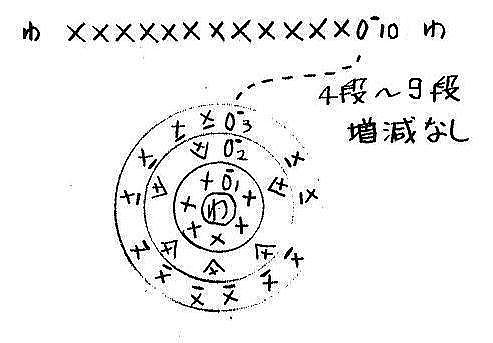 わ ××××××××××××0-10 わ
4段〜9段
増減なし
0-3
0-2
0-1
わ